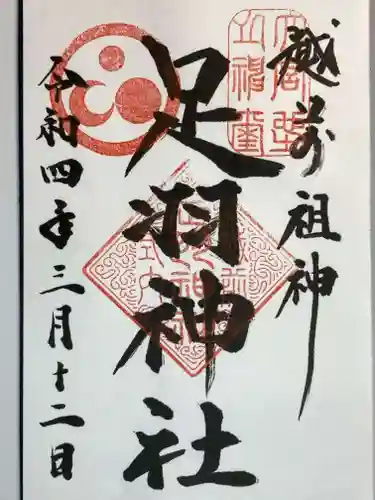 越前祖神
足羽神社
令和四年三月十二日